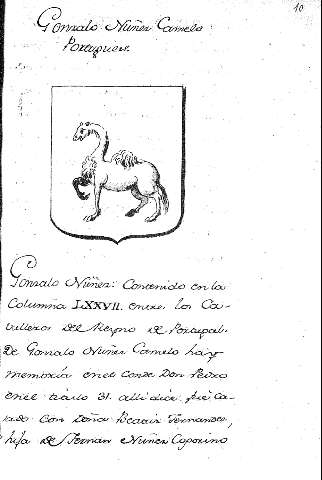 10
Gonzalo Nuñez Camelo
Portugues.
Gonzalo Nuñez: Contenido en la
Columna LXXVII. entre los Ca-
valleros del Reyno de Portugal.
De Gonzalo Nuñez Camelo hay
memoria en el Conde Don Pedro
en el titulo 31. alli dice fué Ca-
sado con Doña Beatriz Fernandez,
hija de Fernan Nuñez